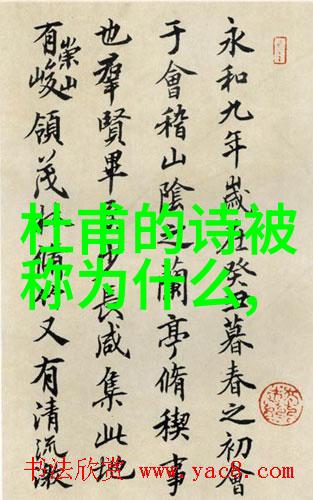 永和九年歲在癸丑暮春之初會
于會稽山陰之蘭亭脩稧事
也羣賢畢至少長咸集此地
有崇山峻領茂林脩竹又有清流激
杜甫的诗被
称为什么,
书法欣赏 www.yac8.com